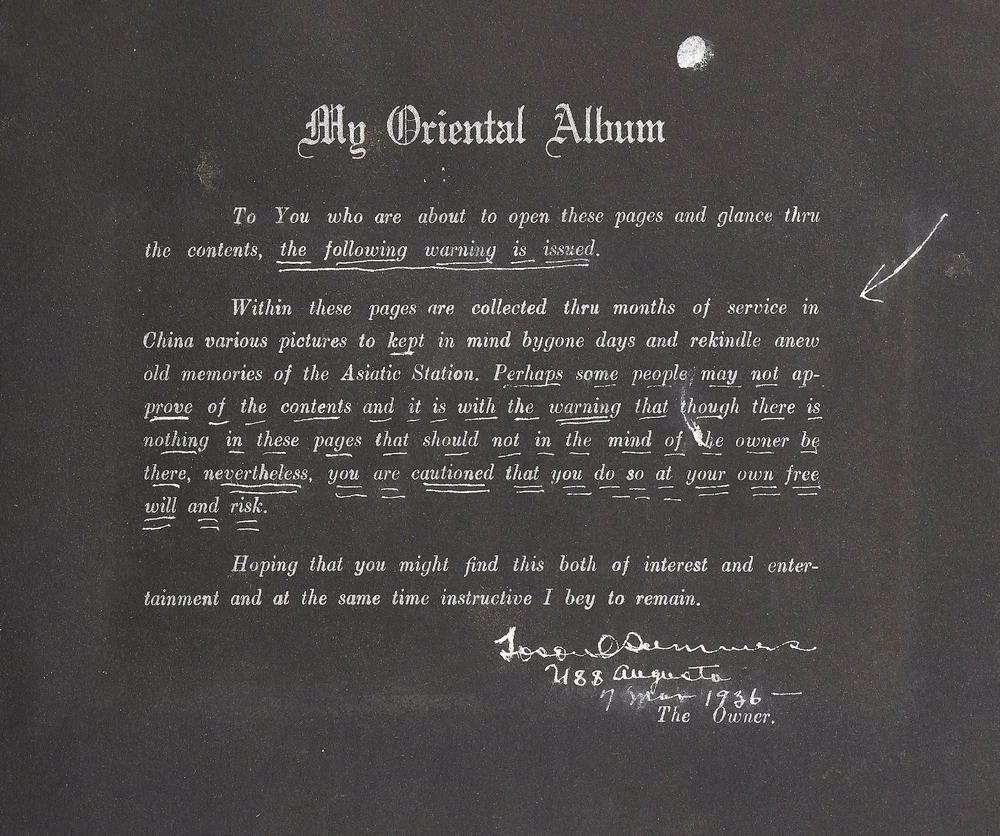 My Oriental Album
To You who are about to open these pages and glance thru
the contents, the following warning is issued.
Within these pages are collected thru months of service in
China various pictures to kept in mind bygone days and rekindle anew
old memories of the Asiatic Station. Perhaps some people may not ap-
prove of the contents and it is with the warning that though there is
nothing in these pages that should not in the mind of the owner be
there, nevertheless, you are cautioned that you do so at your own free
will and risk.
Hoping that you might find this both of interest and enter-
tainment and at the same time instructive I bey to remain.
Summers
USS Augusta
7 Mar 1936 —
The Owner.